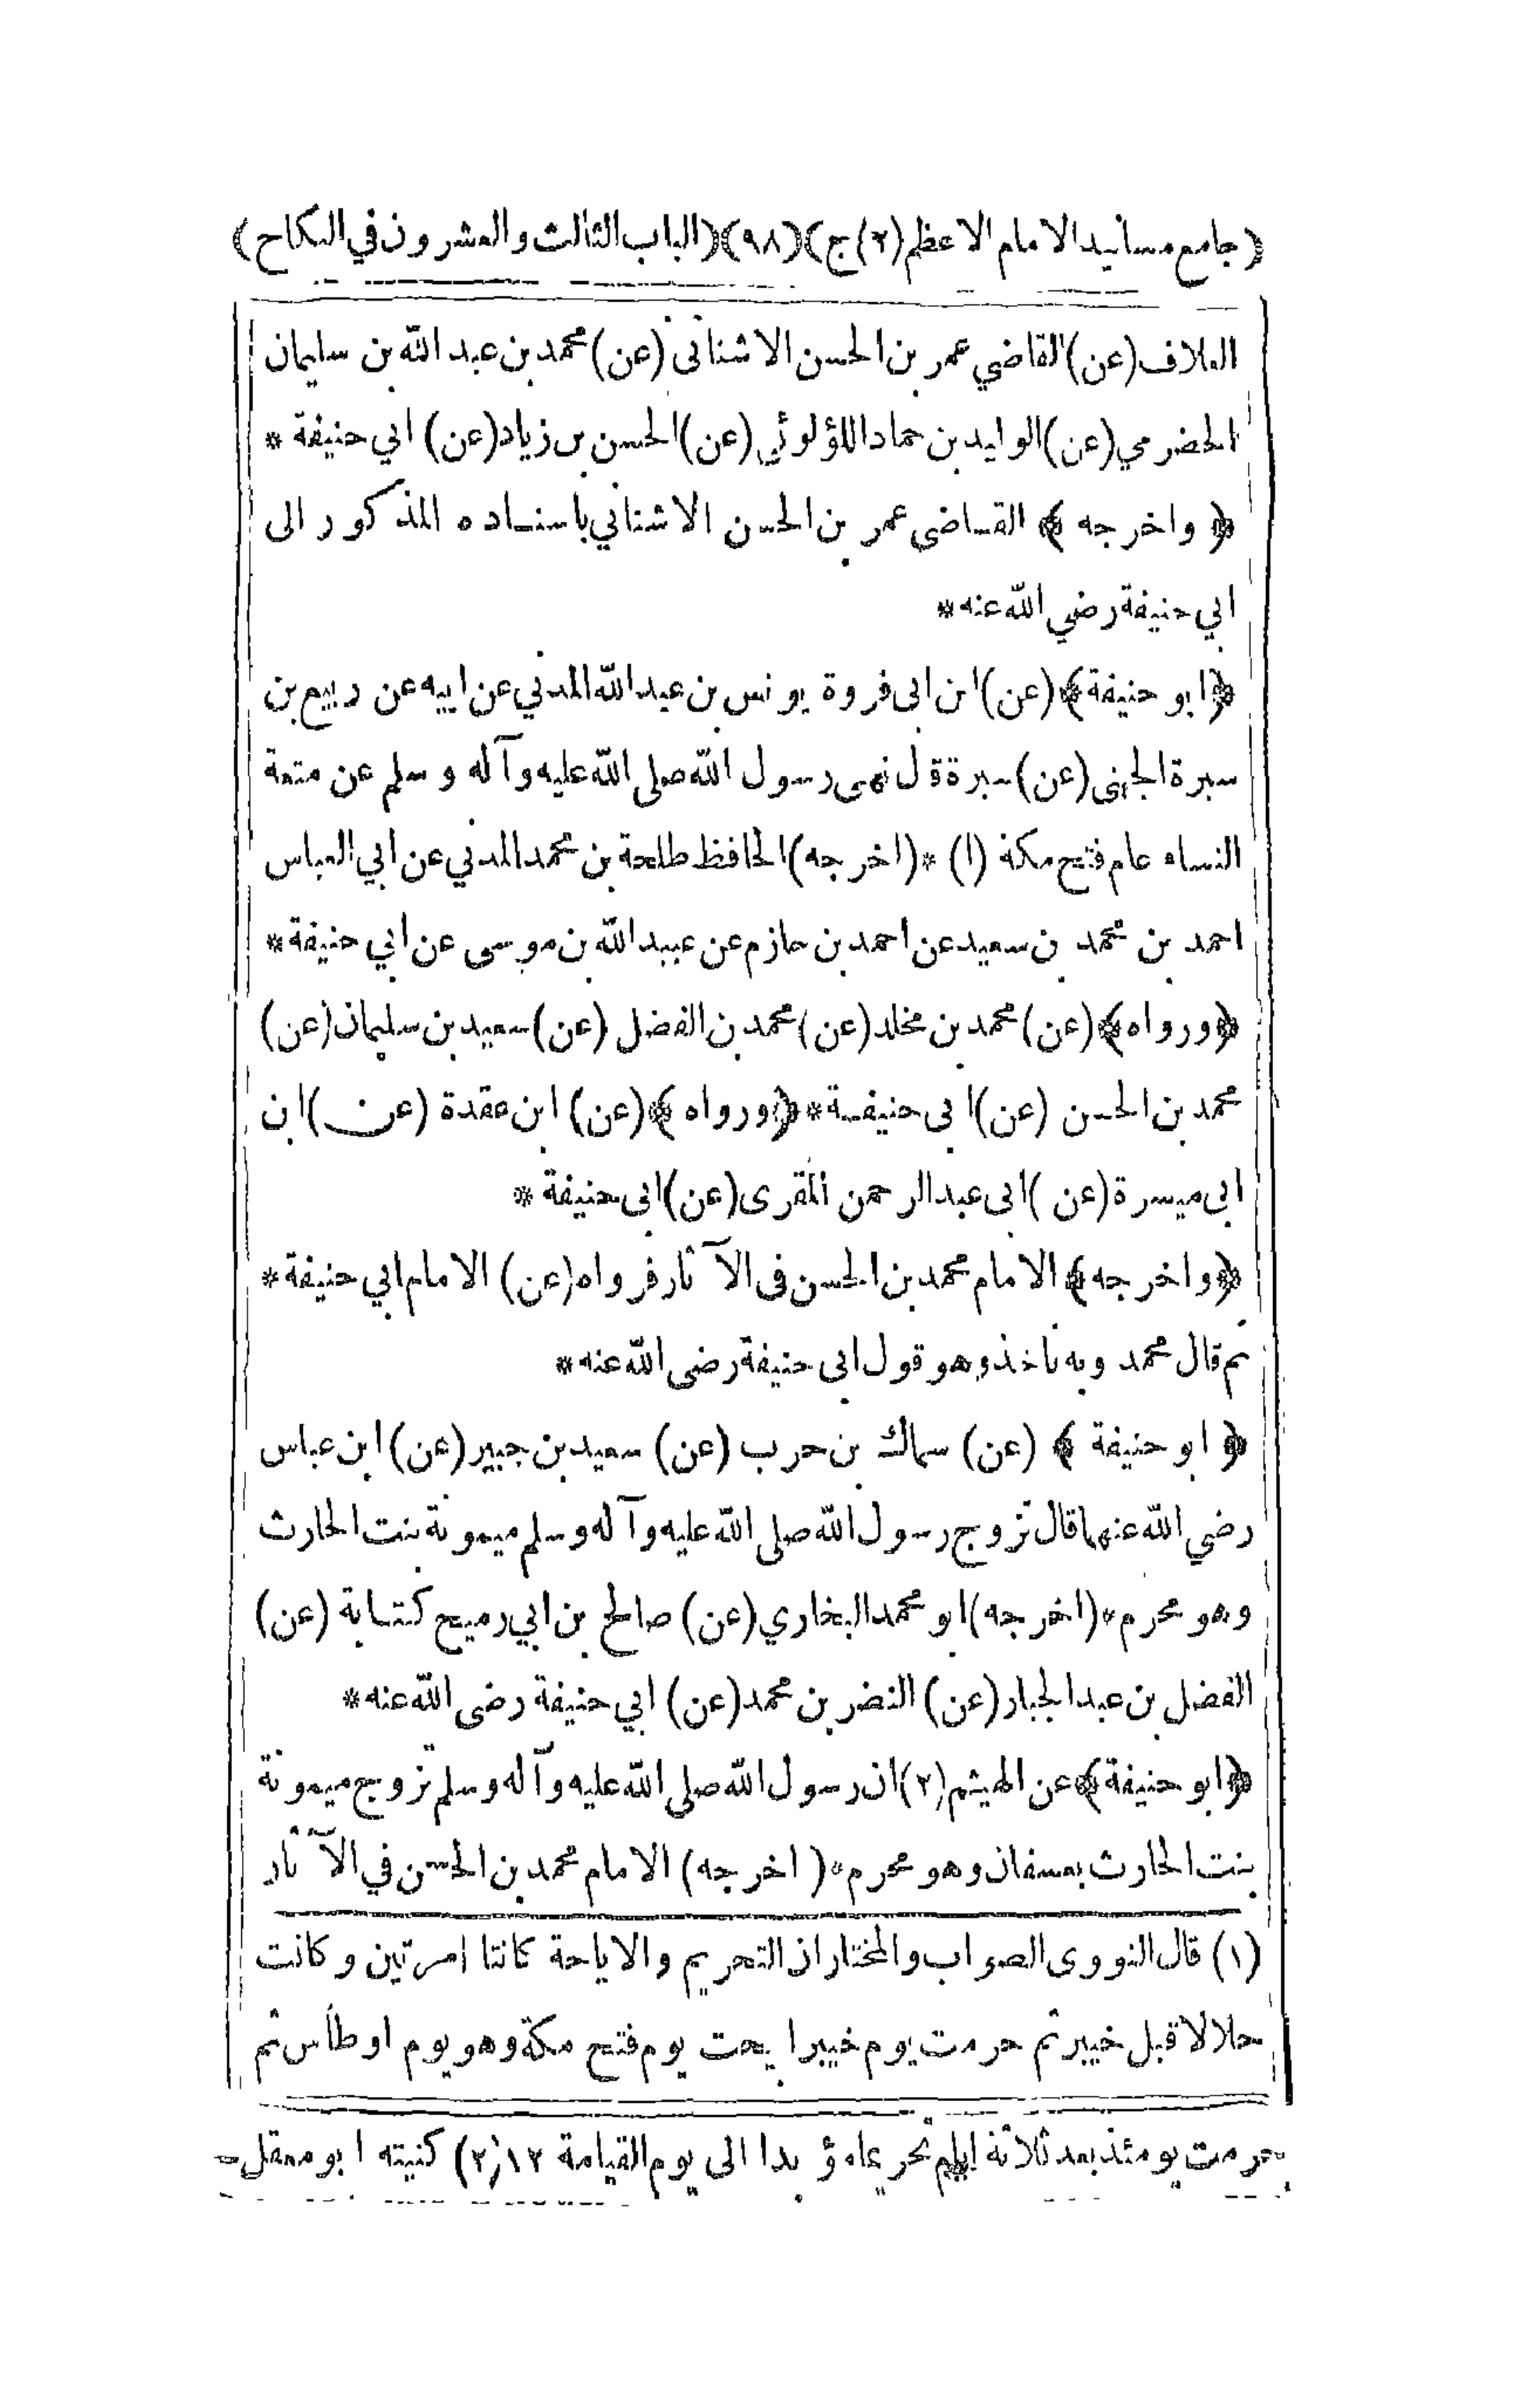 (جامع مسانيد الامام الاعظم (٢) ج) (٩٨) (الباب الثالث والعشرون في النكاح)
العلاف (عن) القاضي عمر بن الحسن الاشناني (عن) محمد بن عبد الله بن سليمان
الحضرمي (عن) الوليد بن حماد اللؤلوئي (عن) الحسن بن زياد (عن) ابي حنيفة *
﴿ واخرجه ﴾ القاضي عمر بن الحسن الاشناني باسناده المذكور الى
ابي حنيفة رضي الله عنه *
﴿ابو حنيفة﴾ (عن) ابن ابى فروة يونس بن عبد الله المدني عن ابيه عن ربيع بن
سبرة الجهنى (عن) سبرة قال نهى رسول الله صلى الله عليه وآله وسلم عن متعة
النساء عام فتح مكة (١) * (اخرجه) الحافظ طلحة بن محمد المدني عن ابي العباس
احمد بن محمد بن سعيد عن احمد بن حازم عن عبيد الله بن موسى عن ابي حنيفة *
﴿ورواه﴾ (عن) محمد بن مخلد (عن) محمد بن الفضل (عن) سعيد بن سليمان (عن)
محمد بن الحسن (عن) ابى حنيفة * ﴿ورواه﴾ (عن) ابن عقدة (عن) ابن
ابى ميسرة (عن) ابى عبد الرحمن المقرى (عن) ابى حنيفة *
﴿واخرجه﴾ الامام محمد بن الحسن فى الآثار فرواه (عن) الامام ابي حنيفة *
ثم قال محمد وبه ناخذ وهو قول ابى حنيفة رضى الله عنه *
﴿ ابو حنيفة ﴾ (عن) سماك بن حرب (عن) سعيد بن جبير (عن) ابن عباس
رضي الله عنهما قال تزوج رسول الله صلى الله عليه وآله وسلم ميمونة بنت الحارث
وهو محرم * (اخرجه) ابو محمد البخاري (عن) صالح بن ابي رميح كتابة (عن)
الفضل بن عبد الجبار (عن) النضر بن محمد (عن) ابي حنيفة رضى الله عنه *
﴿ابو حنيفة﴾ عن الهيثم (٢) ان رسول الله صلى الله عليه وآله وسلم تزوج ميمونة
بنت الحارث بعسفان وهو محرم * (اخرجه) الامام محمد بن الحسن في الآثار
(١) قال النووى الصواب والمختار ان التحريم والاباحة كانتا مرتين وكانت
حلالا قبل خيبر ثم حرمت يوم خيبر ابيحت يوم فتح مكة وهو يوم اوطاس ثم
حرمت يومئذ بعد ثلاثة ايام تحريما مؤبدا الى يوم القيامة ١٢ (٢) كنيته ابو معقل